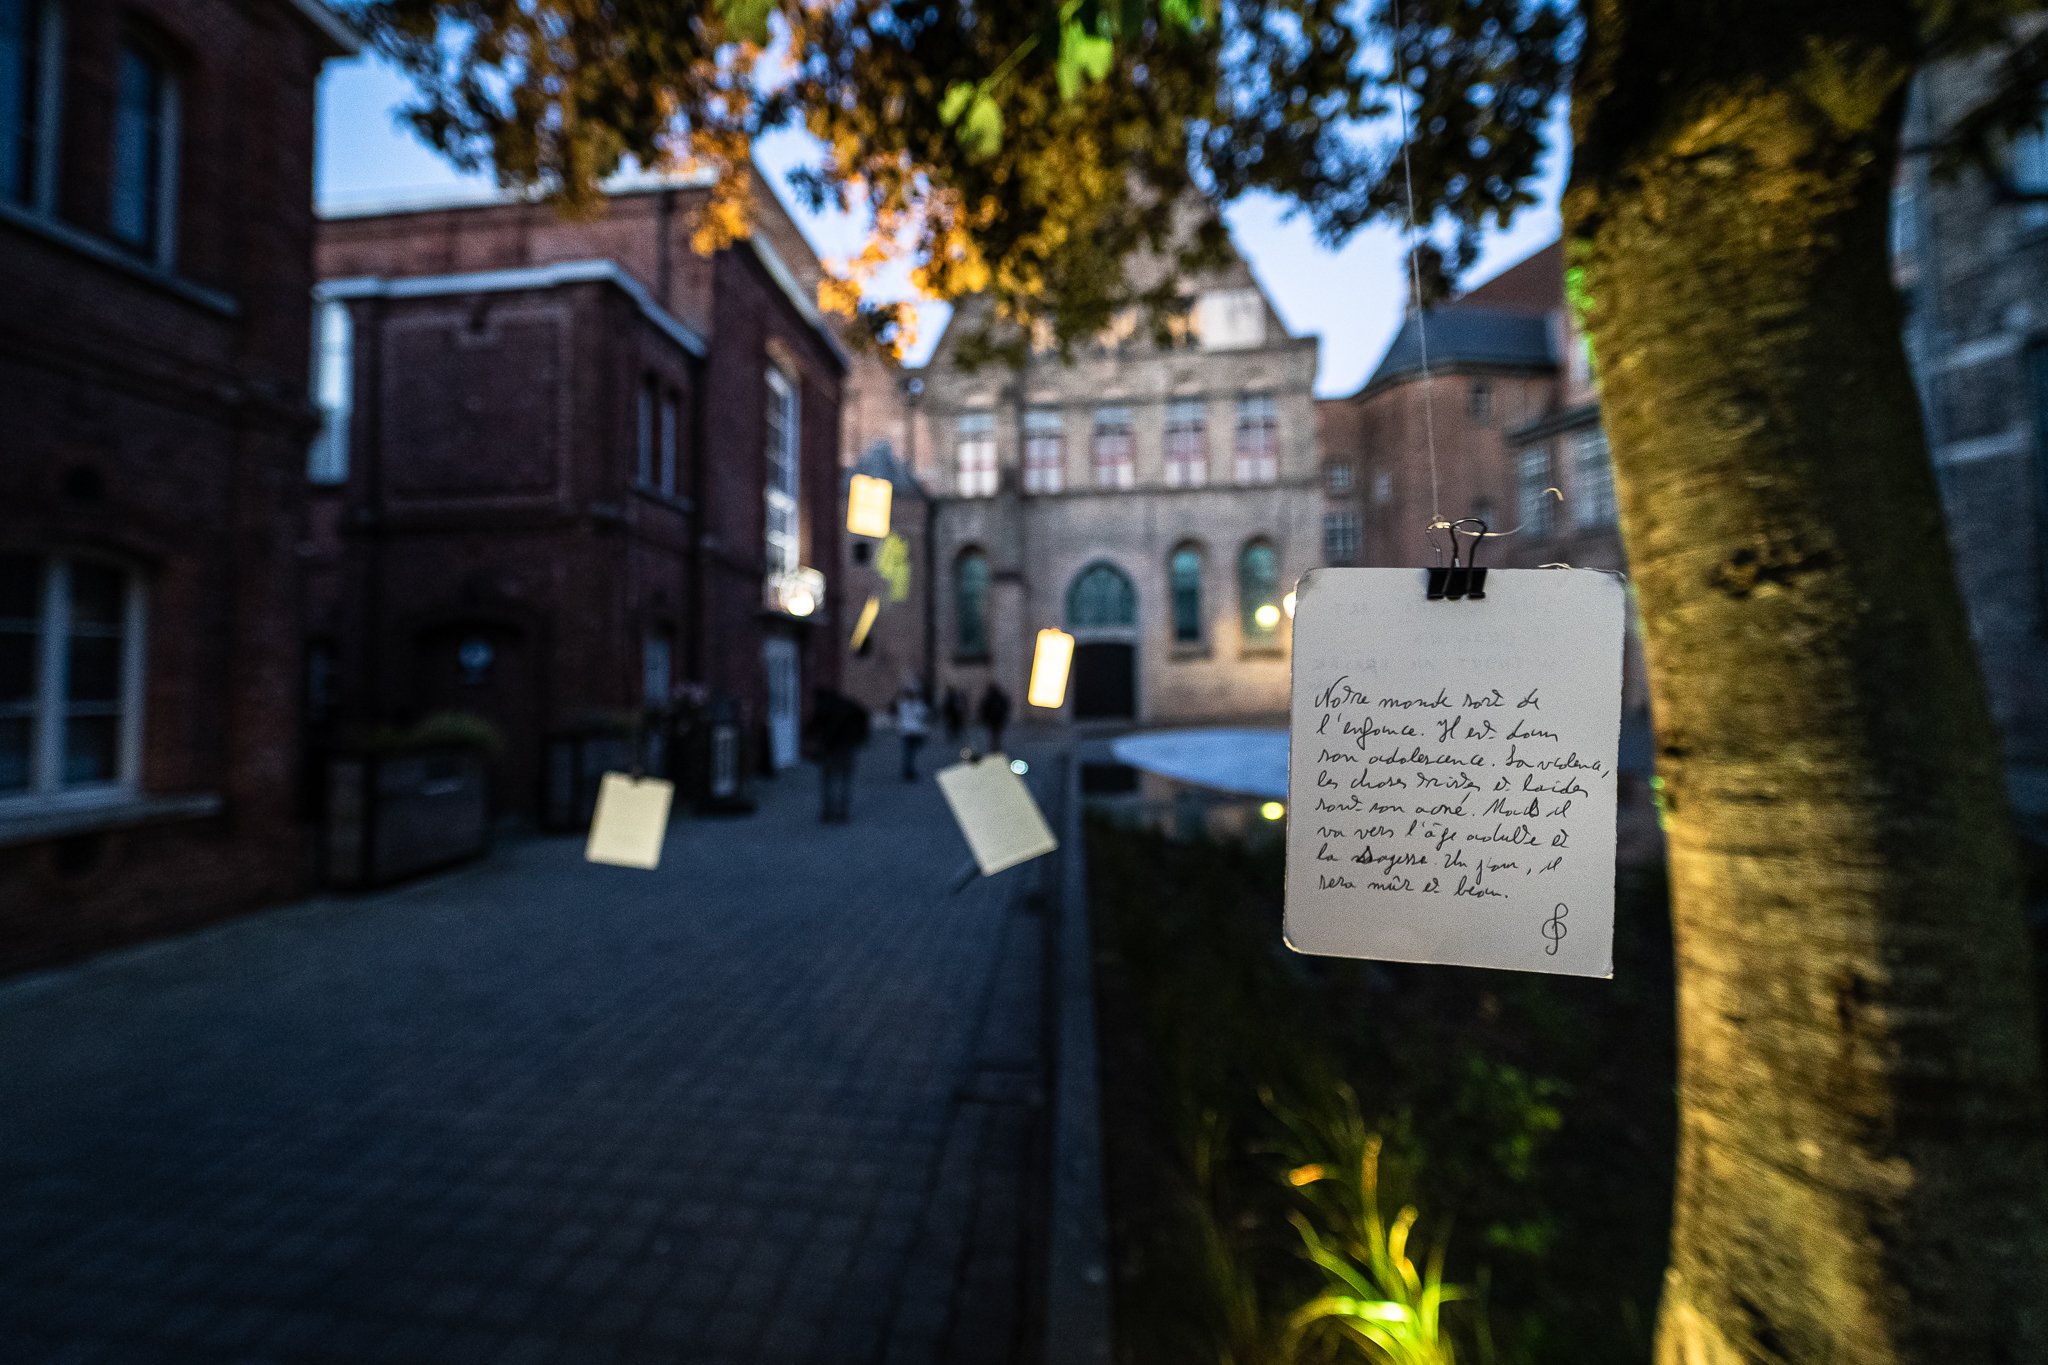 Notre monde sort de
l'enfance. Il est dans
son adolescence. La violence,
les choses tristes et laides
sont son acné. Mais il
va vers l'âge adulte et
la sagesse. Un jour, il
sera mûr et beau.